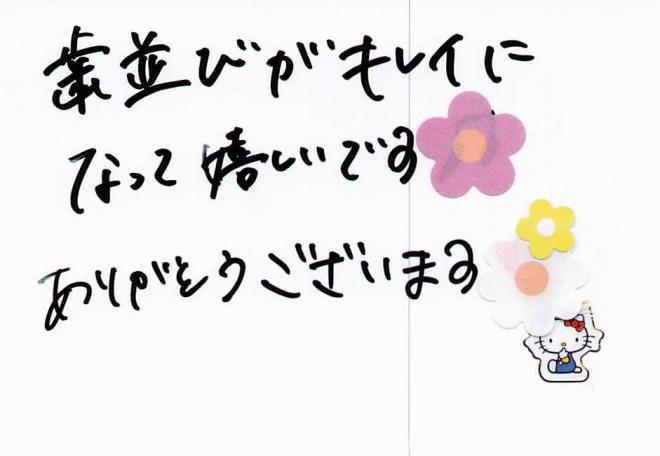 歯並びがキレイに
なって嬉しいです
ありがとうございます